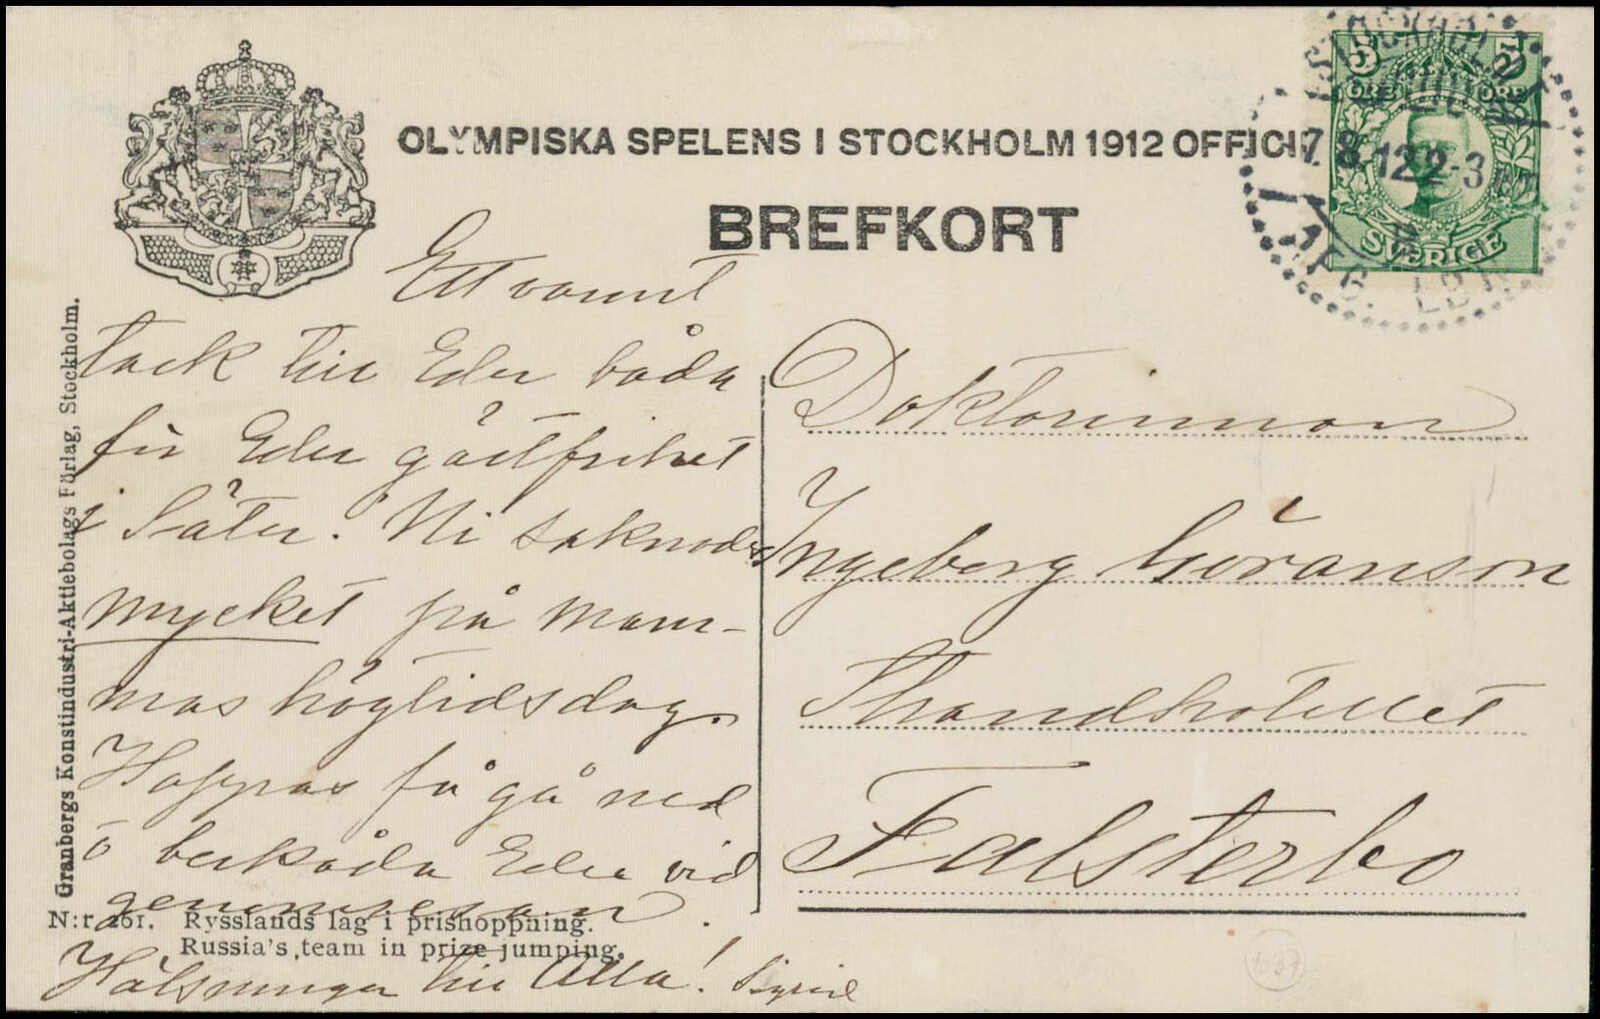 OLYMPISKA SPELENS I STOCKHOLM 1912 OFFICI
BREFKORT
5 5
ÖRE ÖRE
SVERIGE
STOCKHOLM
7. 8. 12 2-3
LBR.
Granbergs Konstindustri-Aktiebolags Förlag, Stockholm.
Ett varmt
tack till Eder båda
för Eder gästfrihet
i Säter. Ni saknades
mycket på mam-
mas högtidsdag.
Hoppas få gå ned
o beskåda Eder vid
genomresan.
Hälsningar till Alla! Sigrid
Doktorinnan
Ingeborg Göranson
Strandhotellet
Falsterbo
N:r 261. Rysslands lag i prishoppning.
Russia's team in prize jumping.